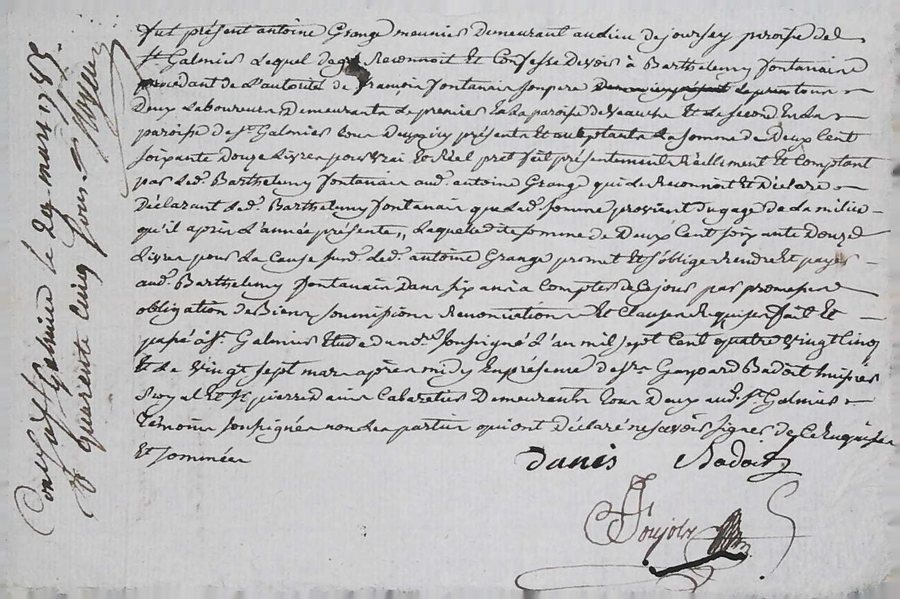 fut présent antoine Grange meunier Demeurant audieu de joursey paroisse de
St Galmier Lequel de gré Reconnoit Et Confesse Devoir à Barthelemy fontanaire
procedant de L'autorité de françois fontanair son pere
Deux Laboureurs Demeurants Le premier En La paroisse de veauche Et Le second En La
paroisse de St. Galmier tous Deux ycy présents Et acceptants La somme de Deux Cent
soixante Douze Livres pour vrai Et Réel pret fait présentement Réellement Et Comptant
par Led. Barthelemy fontanair aud. antoine Grange qui Le Reconnoit Et Déclare
Déclarant Led. Barthelemy fontanair que Lad. somme provient du gage de La milice
qu'il a pris L'année présente, Laquelle dite somme de Deux Cent soixante Douze
Livres pour La Cause susd. Led. antoine Grange promet Et s'oblige rendre Et payer
aud. Barthelemy fontanair Dans six ans à Compter de Ce jour par promesse
obligation de Biens soumissions Renonciations Et Clauses Requises fait Et
passé à St. Galmier Etude du nd.re soussigné L'an mil sept Cent quatre vingt Cinq
Et Le vingt sept mars après midy En présence de Sr. Gaspard Badoit huissier
Royal Et Sr pierre danis Cabaretier Demeurants tous Deux aud. St. Galmier
témoins soussignés non Les parties qui ont Déclaré ne sçavoir signer de Ce Enquises
Et sommées
danis Badoit
Ponjols
Con.lé à St Galmier le 29 mars 1785.
R quarente cinq sous.